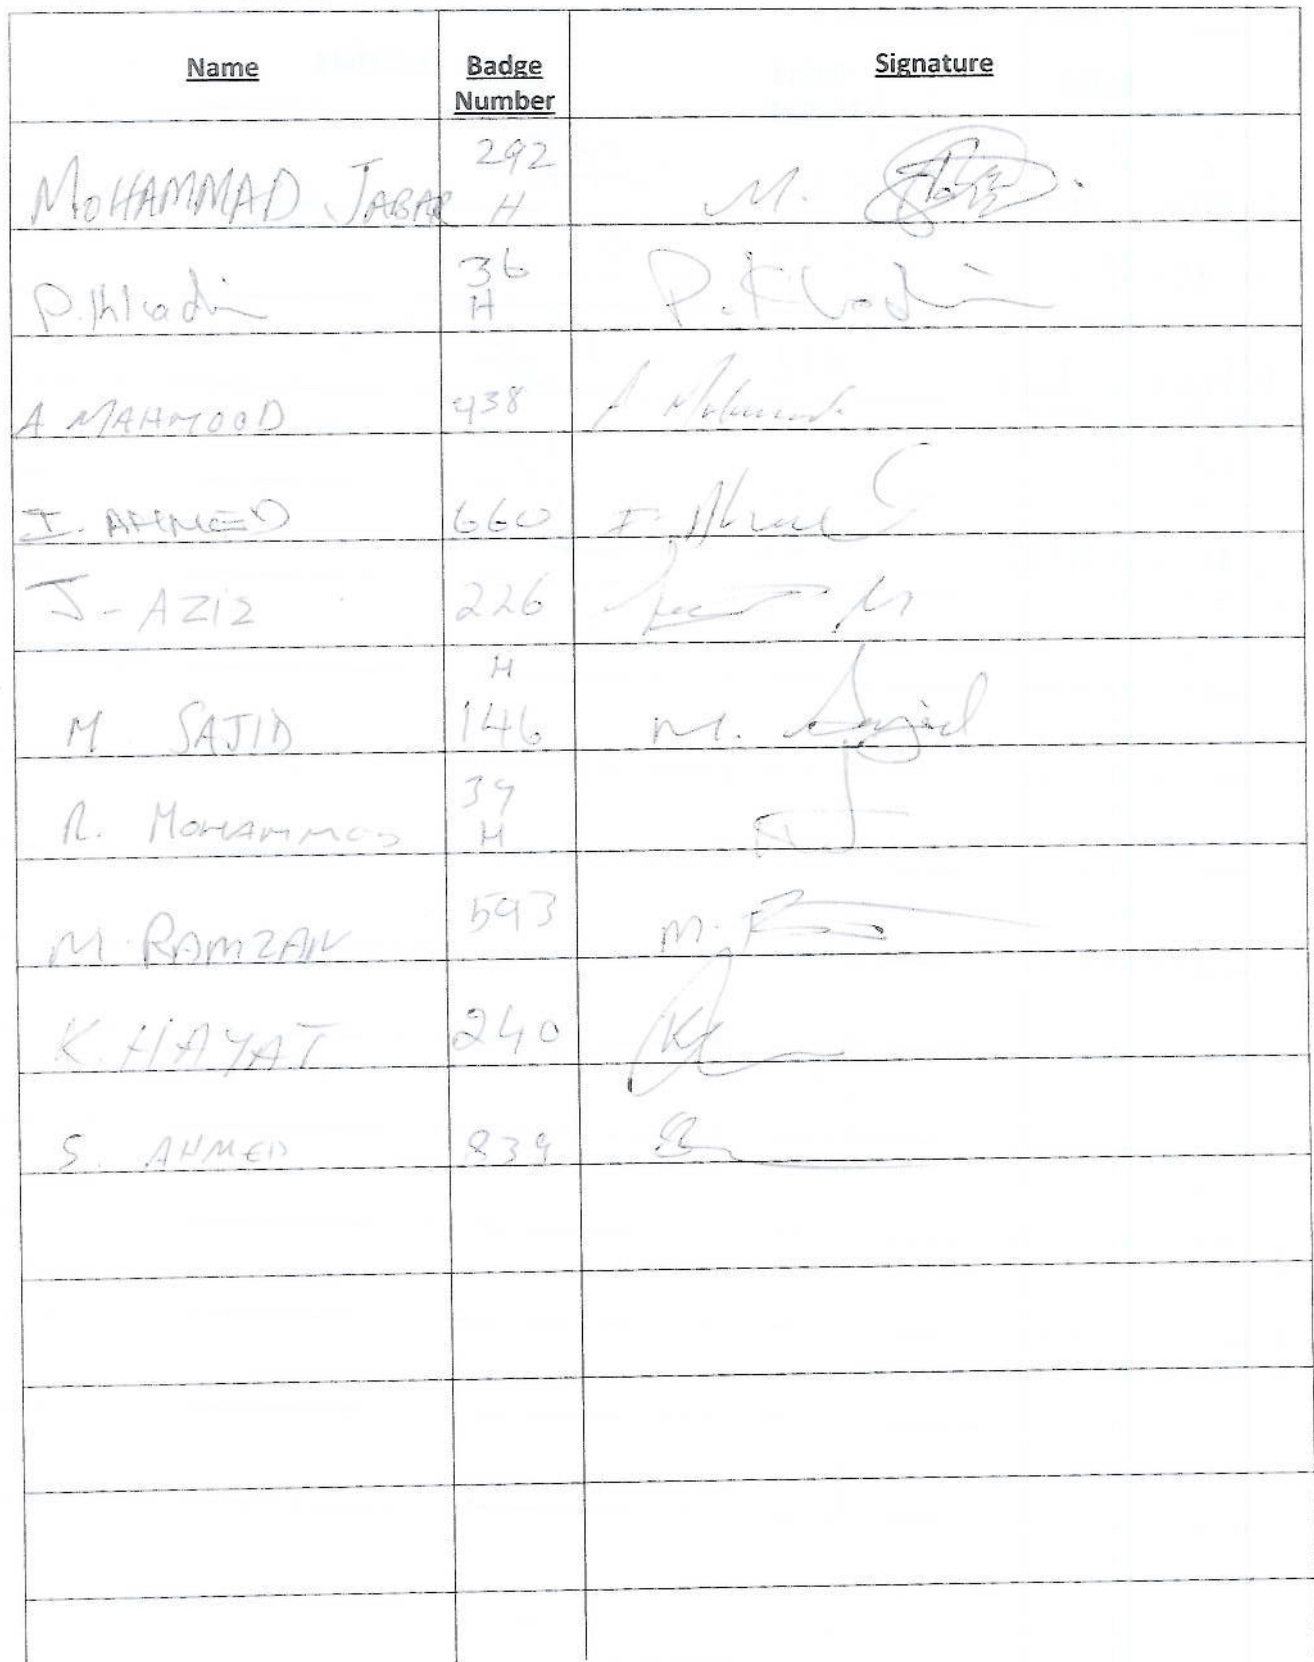 Name Badge Number Signature
MOHAMMAD JABAR 292 H M.
P. Khadim 36 H P. Khadim
A MAHMOOD 438 A Mahmood
I. AHMED 660 I. Ahmed
J - AZIZ 226
M SAJID H 146 M. Sajid
R. MOHAMMED H
M. RAMZAN 593 M.
K. HAYAT 240
S. AHMED 839